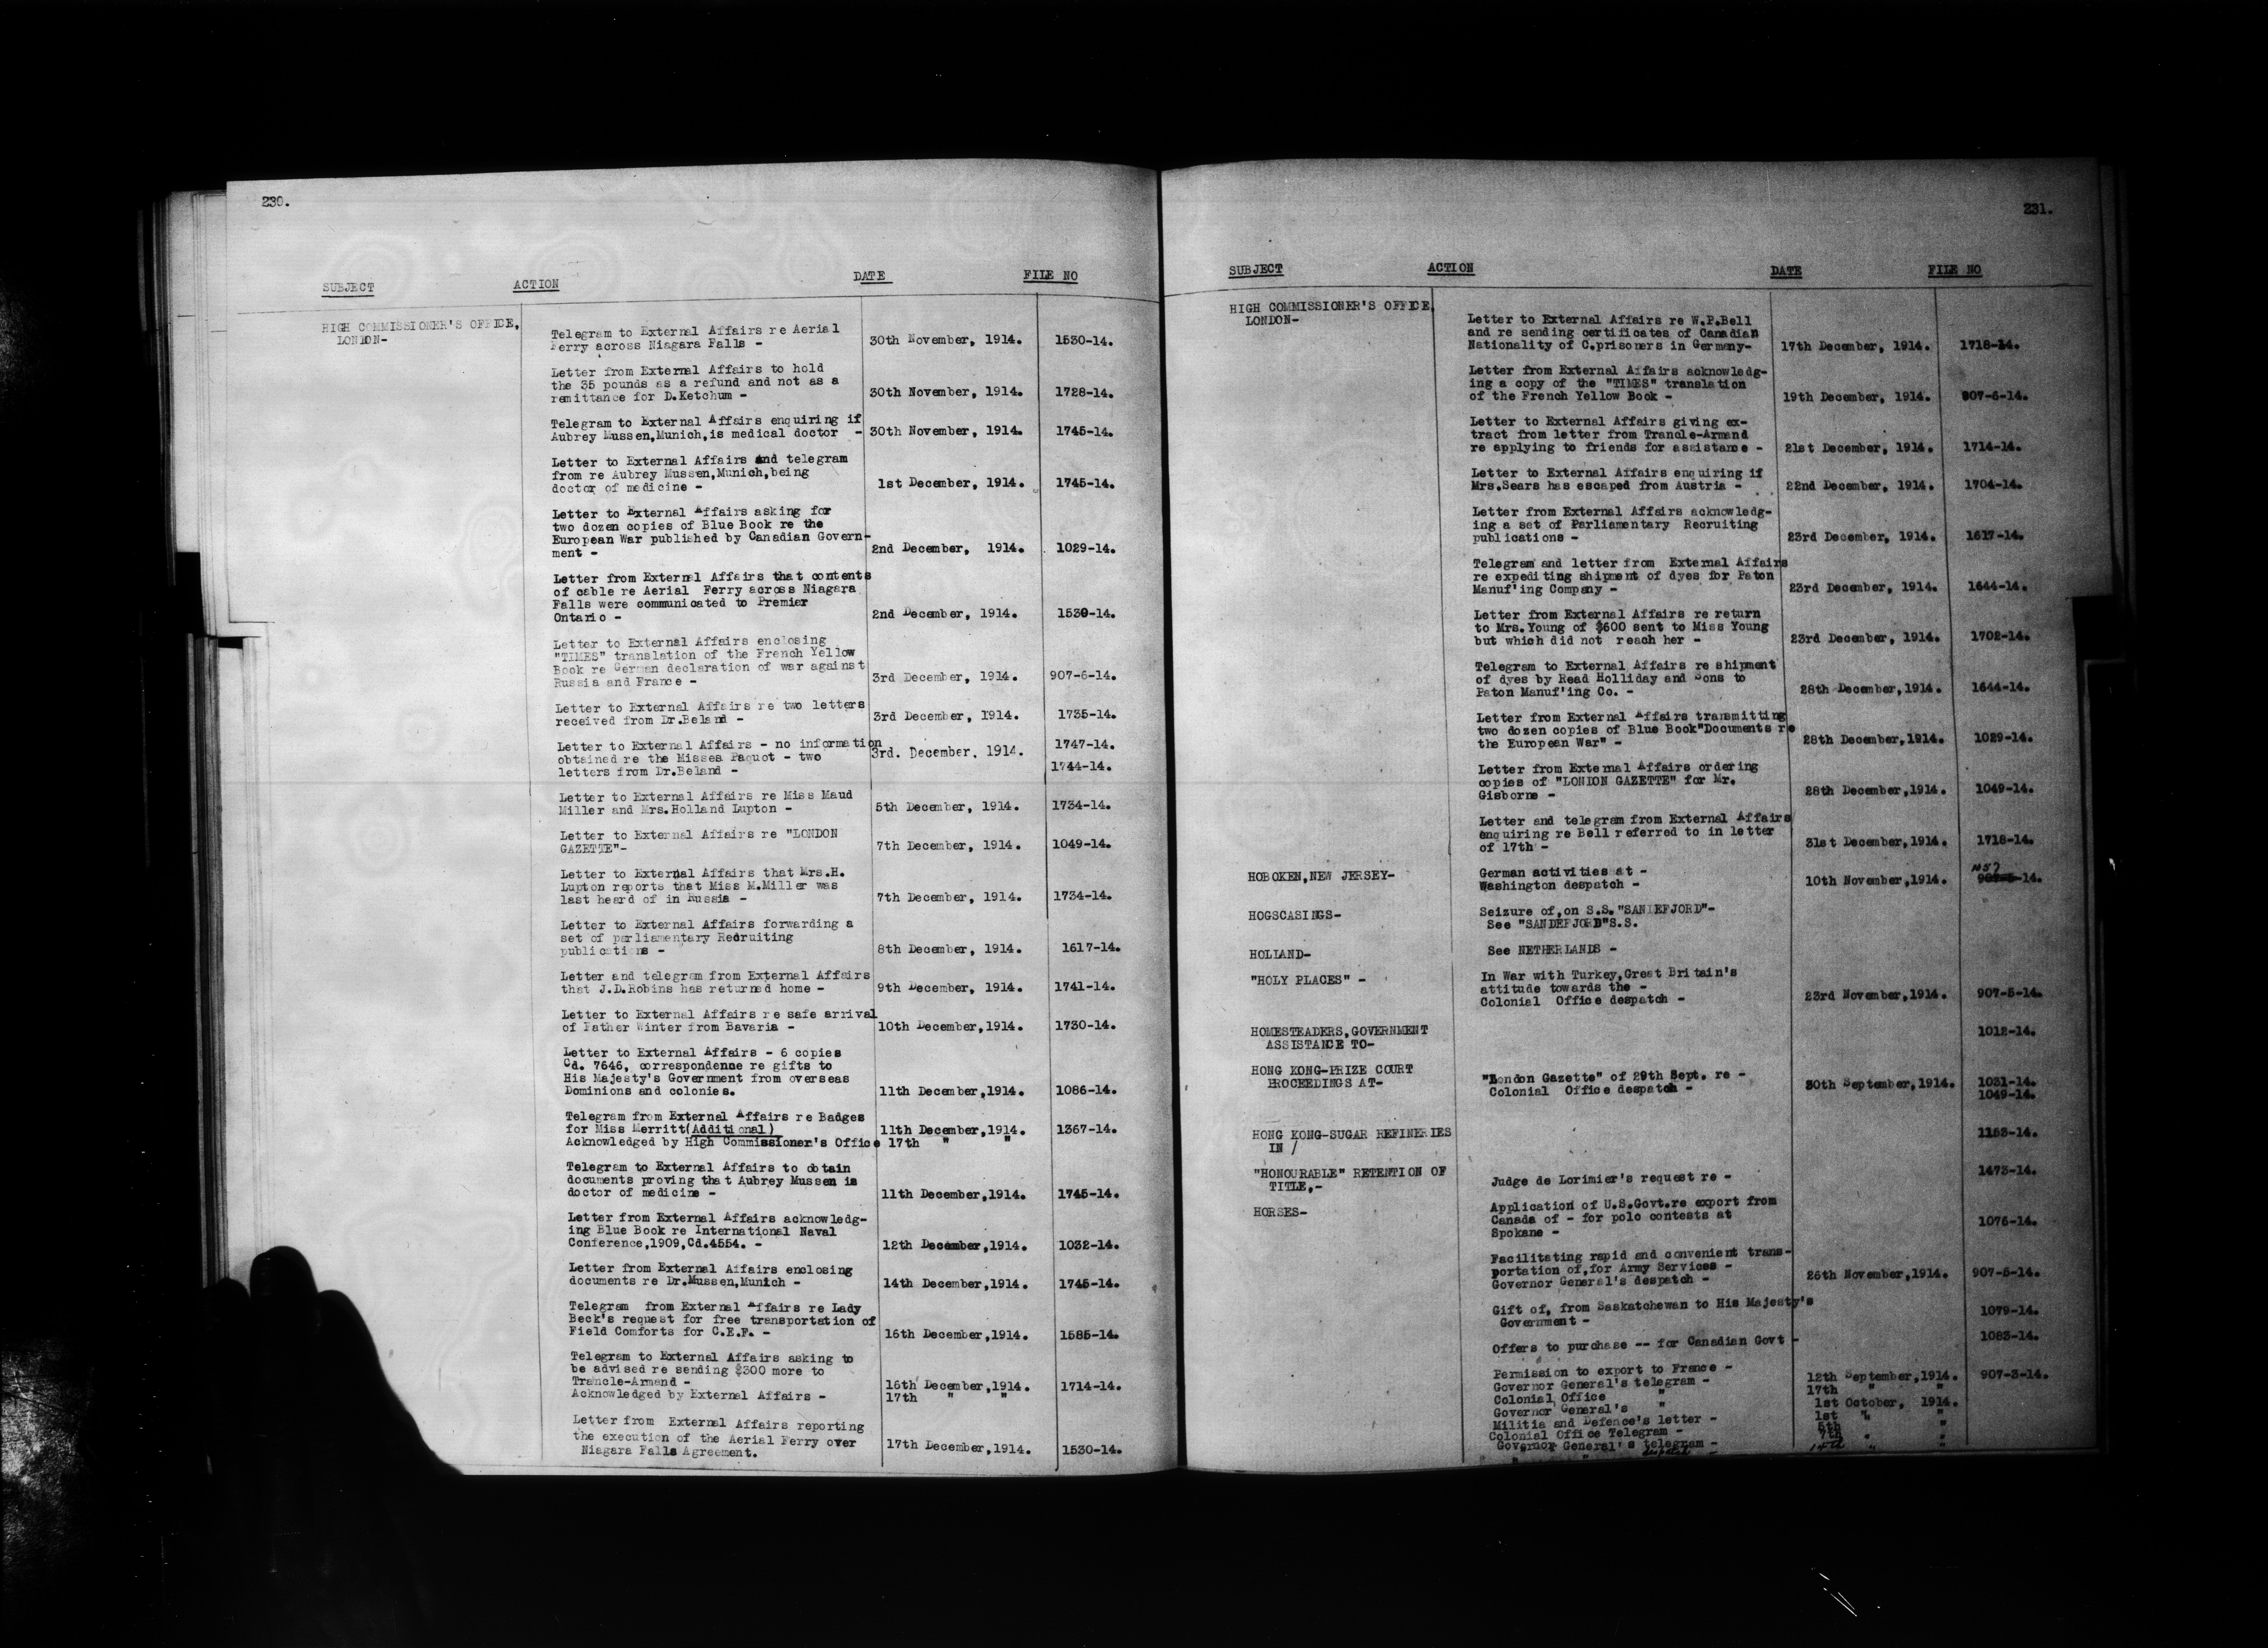 230.
SUBJECT ACTION DATE FILE NO
HIGH COMMISSIONER'S OFFICE,
LONDON-
Telegram to External Affairs re Aerial
Ferry across Niagara Falls - 30th November, 1914. 1530-14.
Letter from External Affairs to hold
the 35 pounds as a refund and not as a
remittance for D.Ketchum - 30th November, 1914. 1728-14.
Telegram to External Affairs enquiring if
Aubrey Mussen,Munich,is medical doctor - 30th November, 1914. 1745-14.
Letter to External Affairs and telegram
from re Aubrey Mussen,Munich,being
doctor of medicine - 1st December, 1914. 1745-14.
Letter to External Affairs asking for
two dozen copies of Blue Book re the
European War published by Canadian Govern-
ment - 2nd December, 1914. 1029-14.
Letter from External Affairs that contents
of cable re Aerial Ferry across Niagara
Falls were communicated to Premier
Ontario - 2nd December, 1914. 1530-14.
Letter to External Affairs enclosing
"TIMES" translation of the French Yellow
Book re German declaration of war against
Russia and France - 3rd December, 1914. 907-6-14.
Letter to External Affairs re two letters
received from Dr.Beland - 3rd December, 1914. 1735-14.
Letter to External Affairs - no information
obtained re the Misses Paquot - two 3rd. December, 1914. 1747-14.
letters from Dr.Beland - 1744-14.
Letter to External Affairs re Miss Maud
Miller and Mrs.Holland Lupton - 5th December, 1914. 1734-14.
Letter to External Affairs re "LONDON
GAZETTE"- 7th December, 1914. 1049-14.
Letter to External Affairs that Mrs.H.
Lupton reports that Miss M.Miller was
last heard of in Russia - 7th December, 1914. 1734-14.
Letter to External Affairs forwarding a
set of parliamentary Recruiting
publications - 8th December, 1914. 1617-14.
Letter and telegram from External Affairs
that J.D.Robins has returned home - 9th December, 1914. 1741-14.
Letter to External Affairs re safe arrival
of Father Winter from Bavaria - 10th December,1914. 1730-14.
Letter to External Affairs - 6 copies
Cd. 7646, correspondenne re gifts to
His Majesty's Government from overseas
Dominions and colonies. 11th December,1914. 1086-14.
Telegram from External Affairs re Badges
for Miss Merritt(Additional) 11th December,1914. 1367-14.
Acknowledged by High Commissioner's Office 17th " "
Telegram to External Affairs to obtain
documents proving that Aubrey Mussen is
doctor of medicine - 11th December,1914. 1745-14.
Letter from External Affairs acknowledg-
ing Blue Book re International Naval
Conference,1909,Cd.4554. - 12th December,1914. 1032-14.
Letter from External Affairs enclosing
documents re Dr.Mussen,Munich - 14th December,1914. 1745-14.
Telegram from External Affairs re Lady
Beck's request for free transportation of
Field Comforts for C.E.F. - 16th December,1914. 1585-14.
Telegram to External Affairs asking to
be advised re sending $300 more to
Trancle-Armand - 16th December,1914. 1714-14.
Acknowledged by External Affairs - 17th " "
Letter from External Affairs reporting
the execution of the Aerial Ferry over 17th December,1914.
Niagara Falls Agreement. 1530-14.
231.
SUBJECT ACTION DATE FILE NO
HIGH COMMISSIONER'S OFFICE,
LONDON-
Letter to External Affairs re W.P.Bell
and re sending certificates of Canadian
Nationality of C.prisoners in Germany- 17th December, 1914. 1718-14.
Letter from External Affairs acknowledg-
ing a copy of the "TIMES" translation
of the French Yellow Book - 19th December, 1914. 907-6-14.
Letter to External Affairs giving ex-
tract from letter from Trancle-Armand
re applying to friends for assistance - 21st December, 1914. 1714-14.
Letter to External Affairs enquiring if
Mrs.Sears has escaped from Austria - 22nd December, 1914. 1704-14.
Letter from External Affairs acknowledg-
ing a set of Parliamentary Recruiting
publications - 23rd December, 1914. 1617-14.
Telegram and letter from External Affairs
re expediting shipment of dyes for Paton
Manuf'ing Company - 23rd December, 1914. 1644-14.
Letter from External Affairs re return
to Mrs.Young of $600 sent to Miss Young
but which did not reach her - 23rd December, 1914. 1702-14.
Telegram to External Affairs re shipment
of dyes by Read Holliday and Sons to
Paton Manuf'ing Co. - 28th December,1914. 1644-14.
Letter from External Affairs transmitting
two dozen copies of Blue Book"Documents re
the European War" - 28th December,1914. 1029-14.
Letter from External Affairs ordering
copies of "LONDON GAZETTE" for Mr.
Gisborne - 28th December,1914. 1049-14.
Letter and telegram from External Affairs
enquiring re Bell referred to in letter
of 17th - 31st December,1914. 1718-14.
HOBOKEN,NEW JERSEY- German activities at -
Washington despatch - 10th November,1914. -14.
HOGSCASINGS- Seizure of,on S.S."SANDEFJORD"-
See "SANDEFJORD"S.S.
HOLLAND- See NETHERLANDS -
"HOLY PLACES" - In War with Turkey,Great Britain's
attitude towards the -
Colonial Office despatch - 23rd November,1914. 907-5-14.
HOMESTEADERS,GOVERNMENT 1012-14.
ASSISTANCE TO-
HONG KONG-PRIZE COURT
PROCEEDINGS AT- "London Gazette" of 29th Sept. re - 30th September,1914. 1031-14.
Colonial Office despatch - 1049-14.
HONG KONG-SUGAR REFINERIES 1153-14.
IN /
"HONOURABLE" RETENTION OF 1473-14.
TITLE,- Judge de Lorimier's request re -
HORSES- Application of U.S.Govt.re export from
Canada of - for polo contests at 1076-14.
Spokane -
Facilitating rapid and convenient trans-
portation of,for Army Services - 26th November,1914. 907-5-14.
Governor General's despatch -
Gift of, from Saskatchewan to His Majesty's 1079-14.
Government -
Offers to purchase -- for Canadian Govt - 1083-14.
Permission to export to France - 12th September,1914. 907-3-14.
Governor General's telegram - 17th " "
Colonial Office " 1st October, 1914.
Governor General's " 1st " "
Militia and Defence's letter - 5th "
Colonial Office Telegram - 7th " "
Governor General's telegram - " "